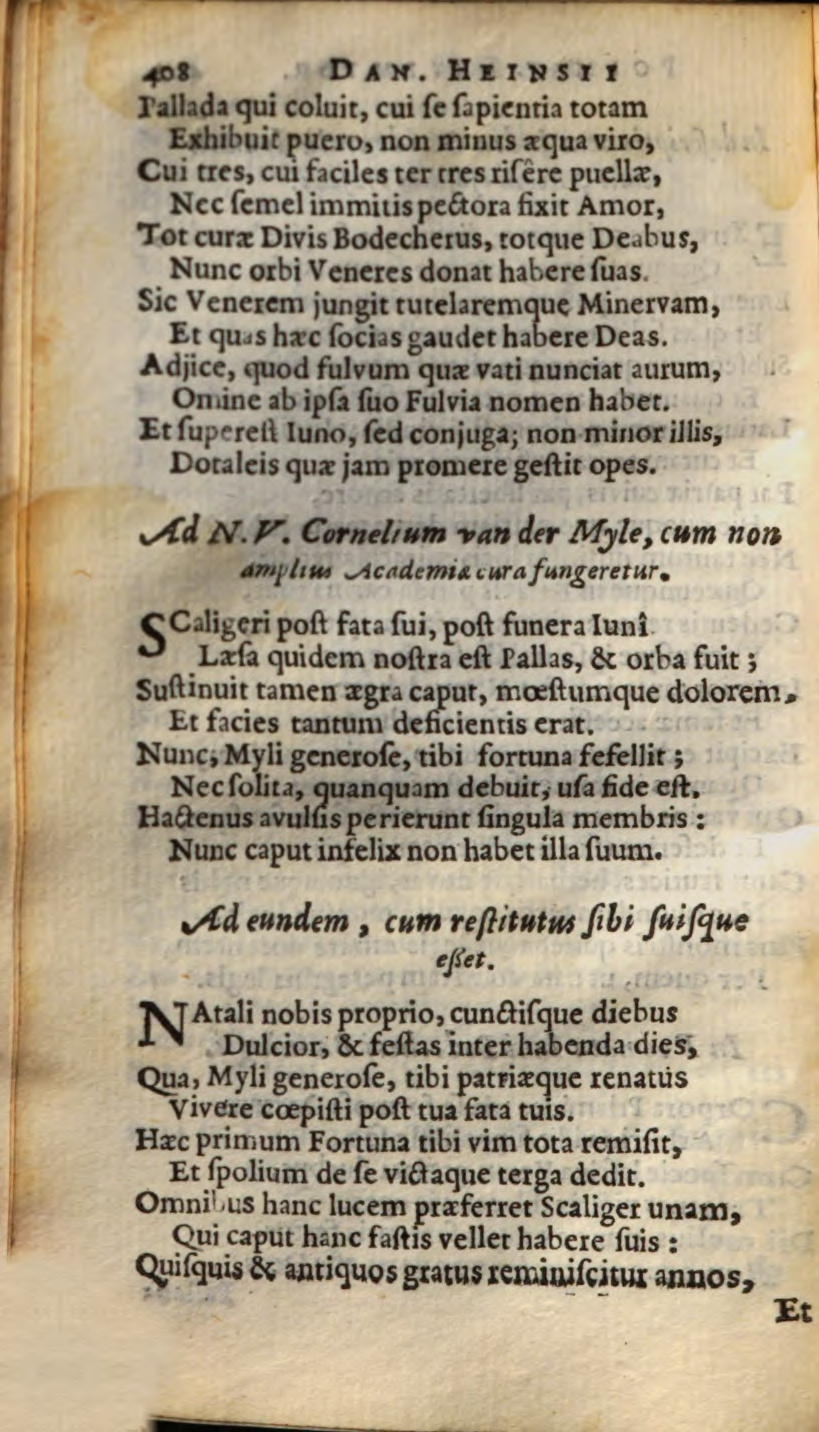 408 DAN. HEINSII
Pallada qui coluit, cui ſe ſapientia totam
Exhibuit puero, non minus æqua viro,
Cui tres, cui faciles ter tres riſêre puellæ,
Nec ſemel immitis pectora fixit Amor,
Tot curæ Divis Bodecherus, totque Deabus,
Nunc orbi Veneres donat habere ſuas.
Sic Venerem jungit tutelaremque Minervam,
Et quas hæc ſocias gaudet habere Deas.
Adjice, quod fulvum quæ vati nunciat aurum,
Omine ab ipſa ſuo Fulvia nomen habet.
Et ſupereſt Iuno, ſed conjuga; non minor illis,
Dotaleis quæ jam promere geſtit opes.
Ad N. V. Cornelium van der Myle, cum non
amplius Academiæ cura fungeretur.
SCaligeri poſt fata ſui, poſt funera Iunî
Læſa quidem noſtra eſt Pallas, & orba fuit;
Suſtinuit tamen ægra caput, mœſtumque dolorem,
Et facies tantum deficientis erat.
Nunc, Myli generoſe, tibi fortuna fefellit;
Nec ſolita, quanquam debuit, uſa fide eſt.
Hactenus avulſis perierunt ſingula membris:
Nunc caput infelix non habet illa ſuum.
Ad eundem, cum reſtitutus ſibi ſuiſque
eſſet.
NAtali nobis proprio, cunctiſque diebus
Dulcior, & feſtas inter habenda dies,
Qua, Myli generoſe, tibi patriæque renatus
Vivere cœpiſti poſt tua fata tuis.
Hæc primum Fortuna tibi vim tota remiſit,
Et ſpolium de ſe victaque terga dedit.
Omnibus hanc lucem præferret Scaliger unam,
Qui caput hanc faſtis vellet habere ſuis:
Quiſquis & antiquos gratus reminiſcitur annos,
Et